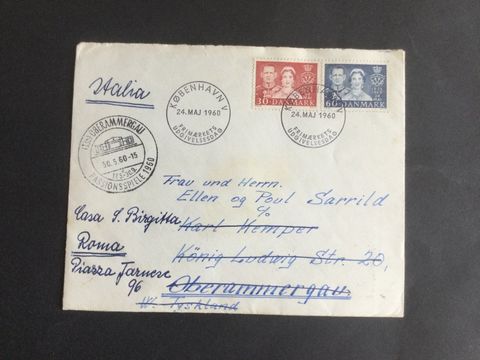 Italia
KØBENHAVN V
24. MAJ 1960
FRIMÆRKETS
UDGIVELSESDAG
30 DANMARK
60 DANMARK
KØBENHAVN V
24. MAJ 1960
FRIMÆRKETS
UDGIVELSESDAG
OBERAMMERGAU
30.5.60-15
PASSIONSSPIELE 1960
Frau und Herrn.
Ellen og Poul Sarrild
c/o
Karl Kemper
König Ludwig Str. 20,
Oberammergau
W. Tyskland
Casa S. Birgitta
Roma
Piazza Farnese
96